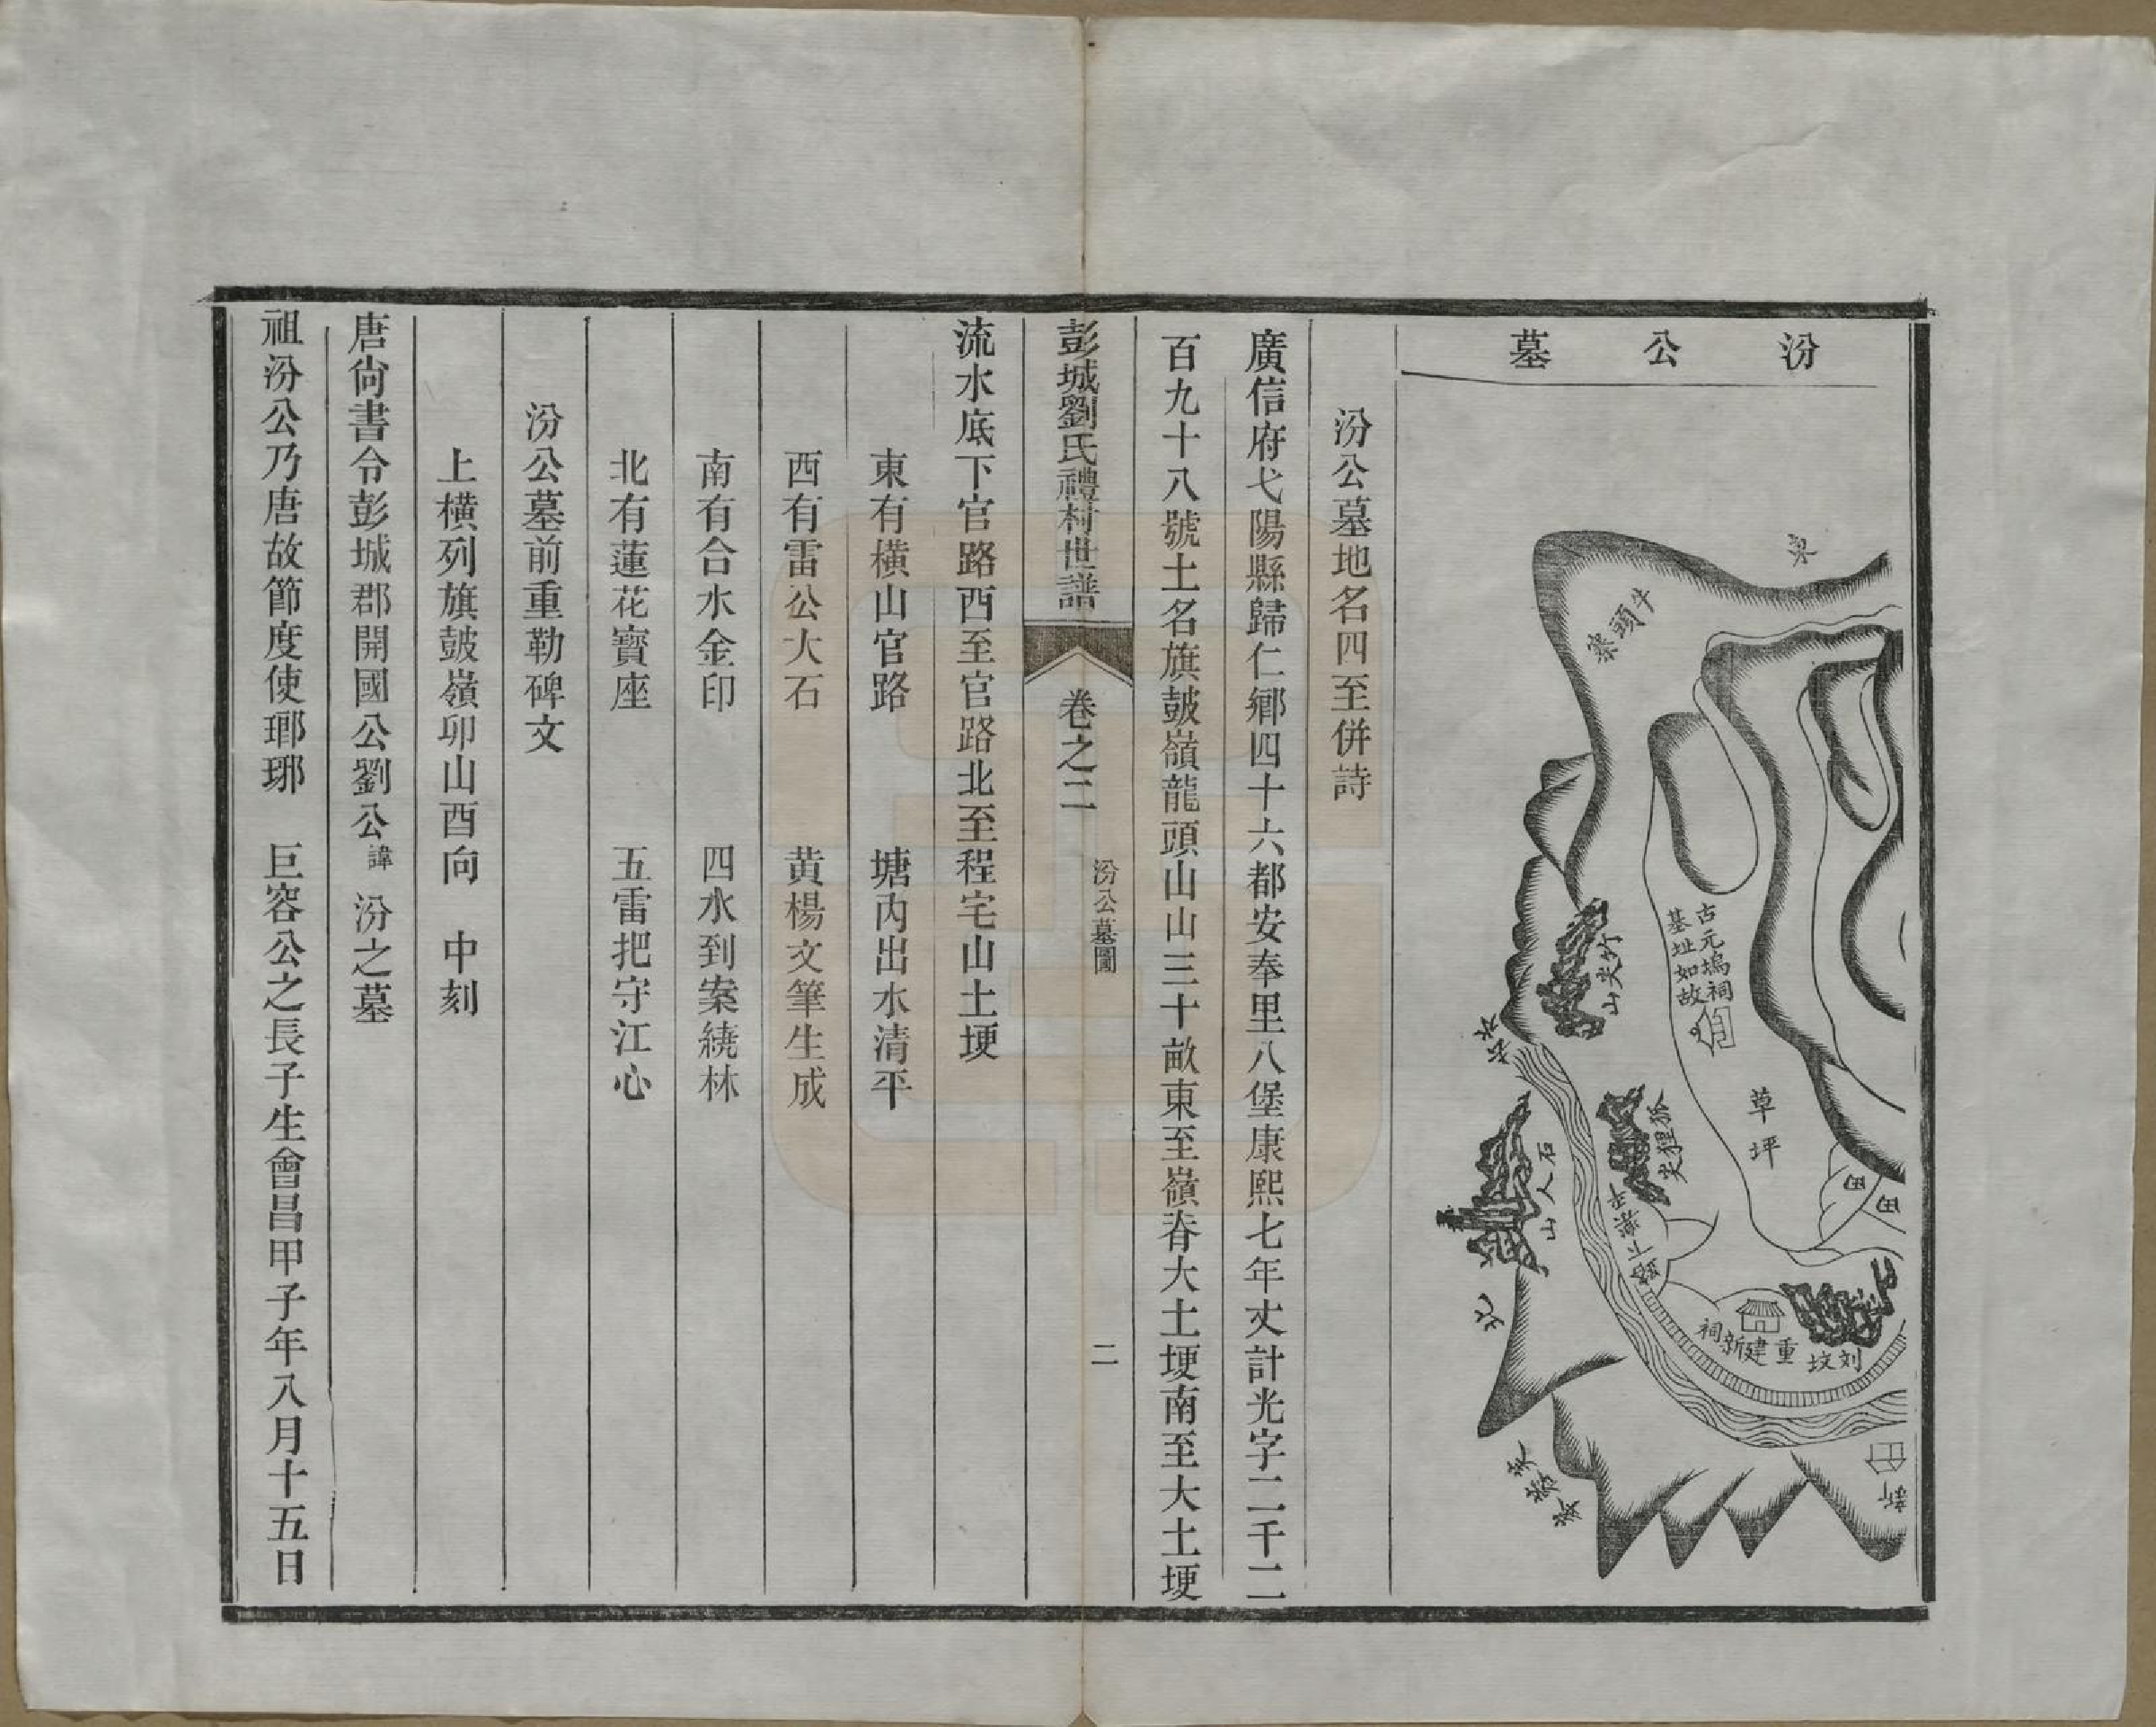 汾公墓
東
牛頭寨
竹尖山
古元塢祠
墓址如故
水
草坪
狐狸尖
石人山
田
田
北
重建新祠
刘坟
新
汾公墓地名四至併詩
廣信府弋陽縣歸仁鄉四十六都安奉里八堡康熙七年丈計光字二千二
百九十八號土名旗鼓嶺龍頭山山三十畝東至嶺脊大土埂南至大土埂
彭城劉氏禮村世譜 卷之二 汾公墓圖 二
流水底下官路西至官路北至程宅山土埂
東有橫山官路 塘內出水清平
西有雷公大石 黃楊文筆生成
南有合水金印 四水到案繞林
北有蓮花寶座 五雷把守江心
汾公墓前重勒碑文
上橫列旗鼓嶺卯山酉向 中刻
唐尙書令彭城郡開國公劉公諱汾之墓
祖汾公乃唐故節度使瑯琊 巨容公之長子生會昌甲子年八月十五日